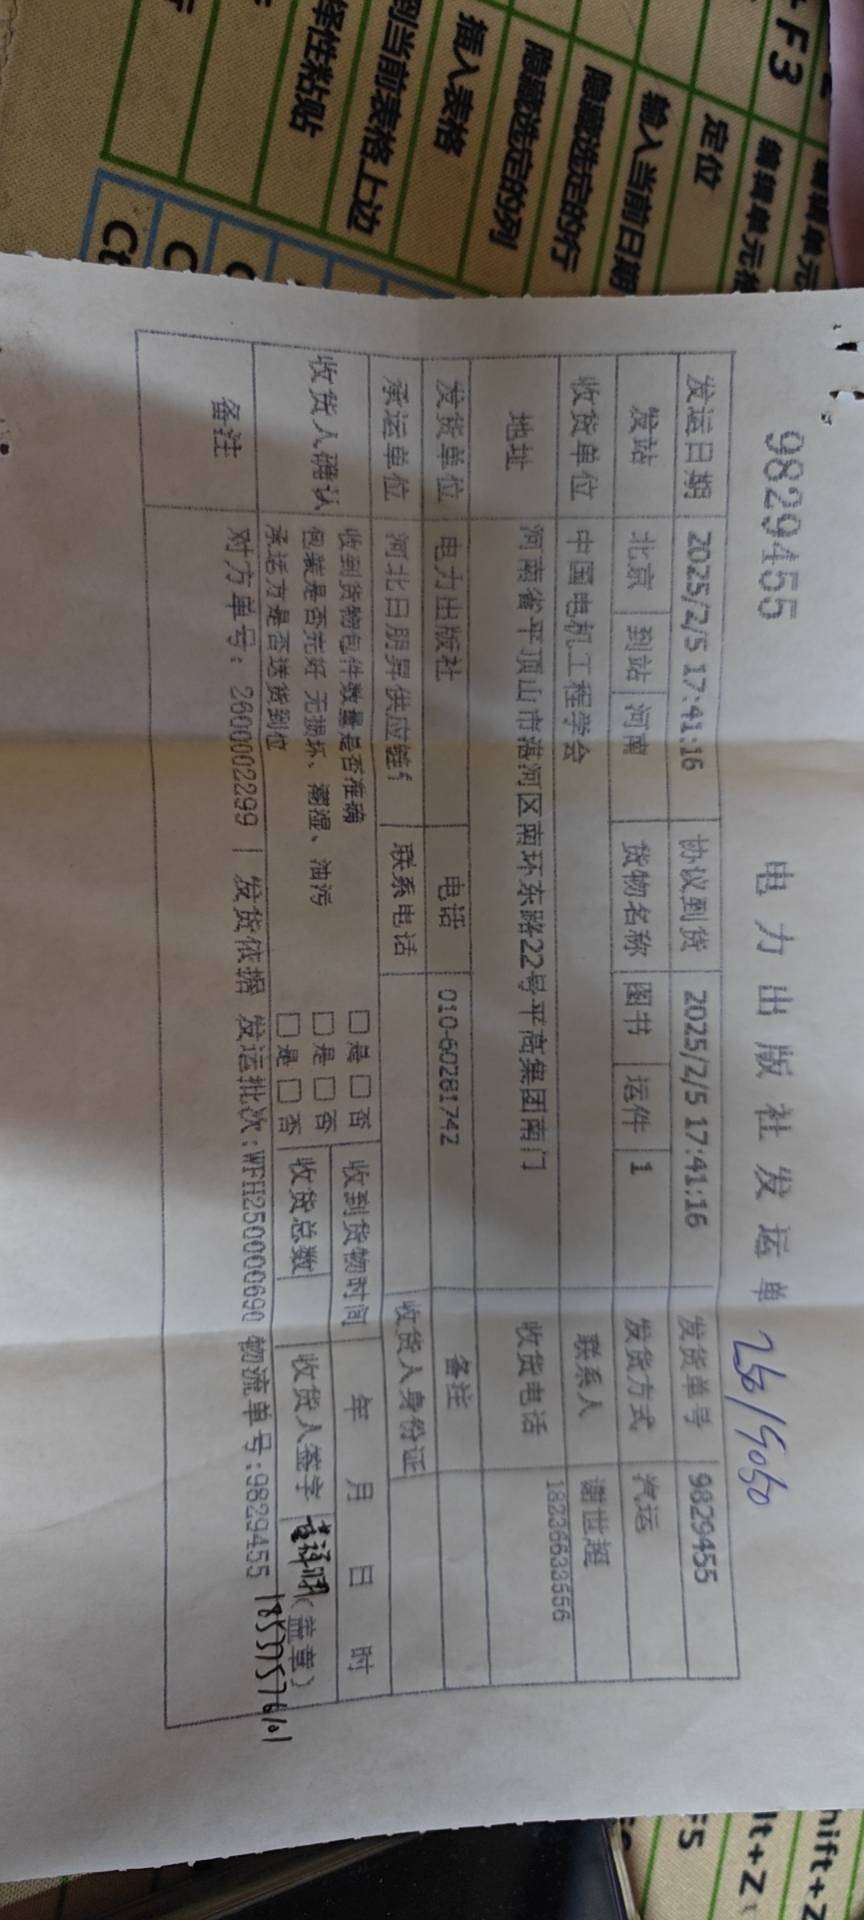 9829455
电力出版社发运单
发运日期 2025/2/5 17:41:16 协议到货 2025/2/5 17:41:16 发货单号 9829455
发站 北京 到站 河南 货物名称 图书 运件 1 发货方式 汽运
收货单位 中国电机工程学会 联系人 谢世超
地址 河南省平顶山市湛河区南环东路22号平高集团南门 收货电话 18236633556
发货单位 电力出版社 电话 010-60281742 备注
承运单位 河北日朋昇供应链 联系电话 收货人身份证
收货人确认 收到货物包件数量是否准确 □是□否 收到货物时间 年 月 日 时
包装是否完好 无损坏、潮湿、油污 □是□否
承运方是否送货到位 □是□否 收货总数 收货人签字 (盖章)
备注 对方单号: 2600002299 | 发货依据 发运批次:WFH250000690 物流单号:9829455
+F3
编辑单元格
定位
输入当前日期
隐藏选定的行
隐藏选定的列
插入表格
到当前表格上边
择性粘贴